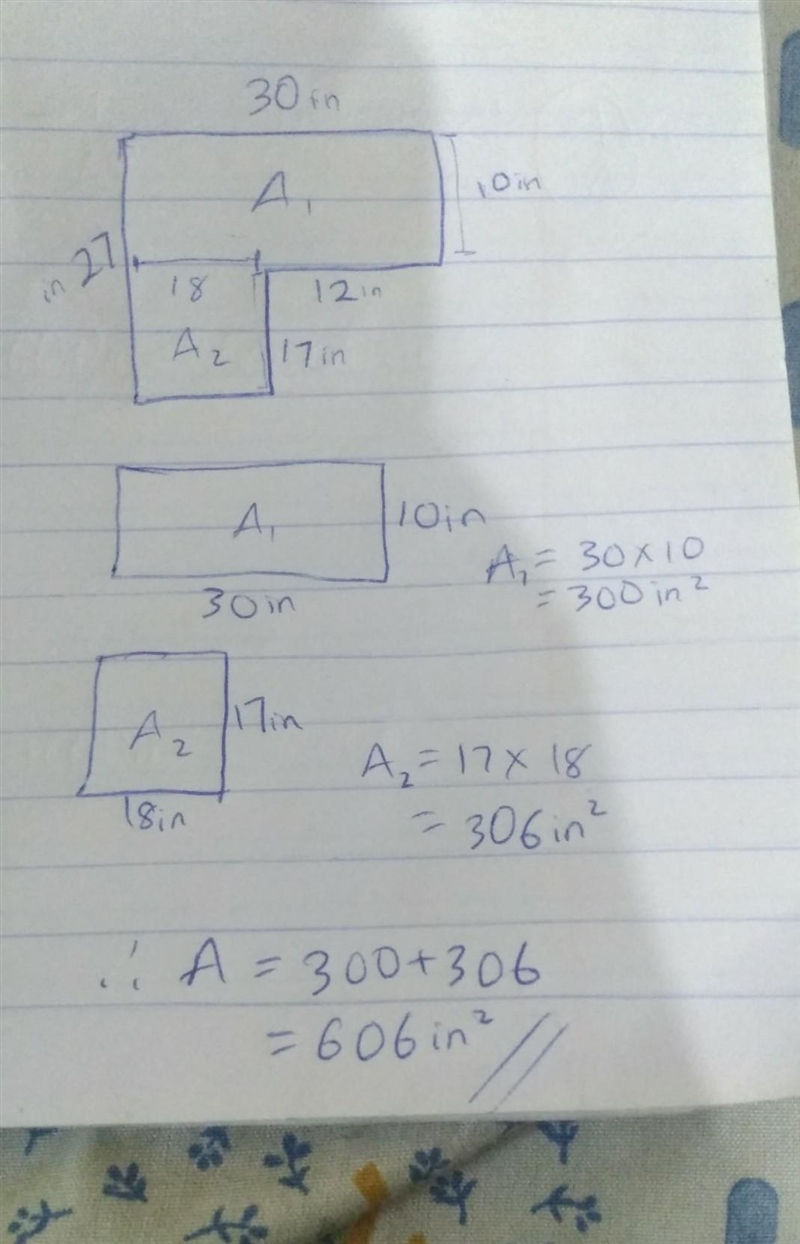 30in
A₁
10in
in 27
18
12in
A₂
17in
A₁
10in
30in
A₁ = 30 × 10
= 300in²
A₂
17in
18in
A₂ = 17 × 18
= 306in²
∴ A = 300 + 306
= 606in² //